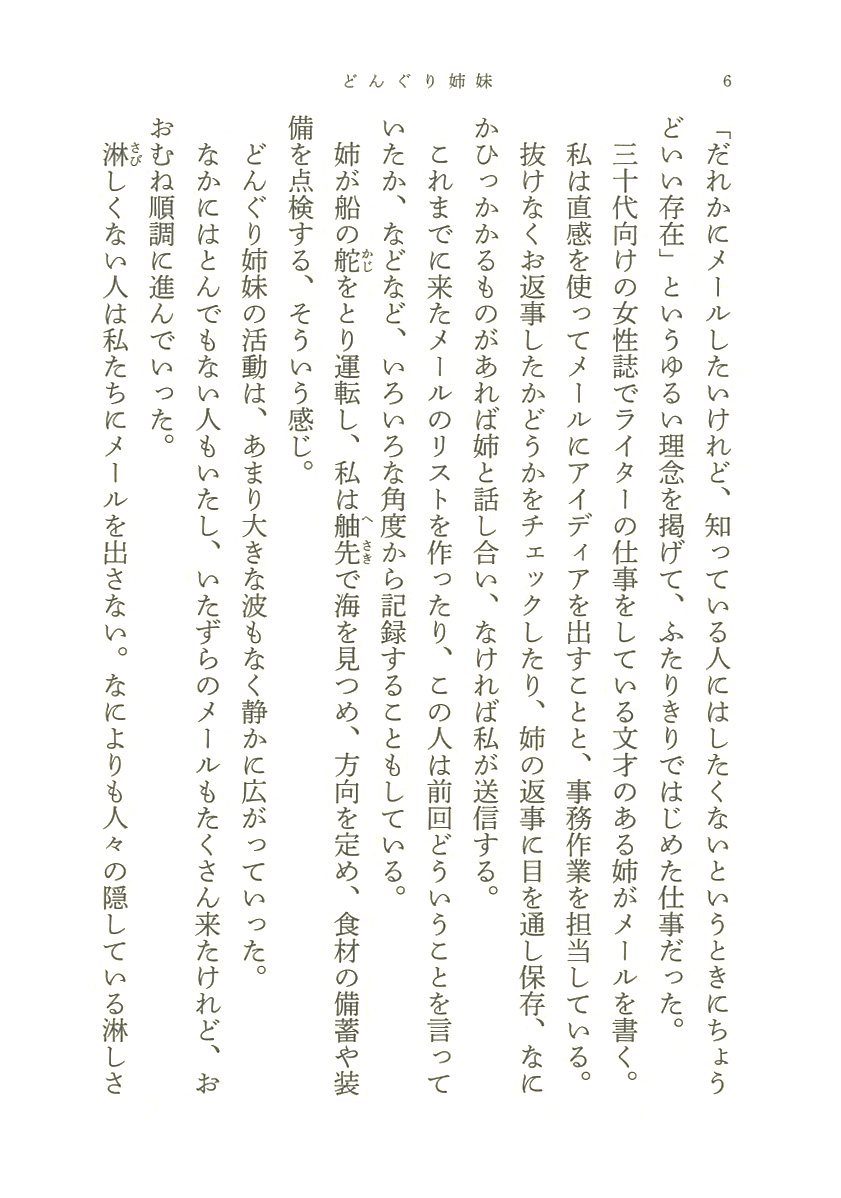 どんぐり姉妹
6
「だれかにメールしたいけれど、知っている人にはしたくないというときにちょう
どいい存在」というゆるい理念を掲げて、ふたりきりではじめた仕事だった。
三十代向けの女性誌でライターの仕事をしている文才のある姉がメールを書く。
私は直感を使ってメールにアイディアを出すことと、事務作業を担当している。
抜けなくお返事したかどうかをチェックしたり、姉の返事に目を通し保存、なに
かひっかかるものがあれば姉と話し合い、なければ私が送信する。
これまでに来たメールのリストを作ったり、この人は前回どういうことを言って
いたか、などなど、いろいろな角度から記録することもしている。
姉が船の舵かじをとり運転し、私は舳先へさきで海を見つめ、方向を定め、食材の備蓄や装
備を点検する、そういう感じ。
どんぐり姉妹の活動は、あまり大きな波もなく静かに広がっていった。
なかにはとんでもない人もいたし、いたずらのメールもたくさん来たけれど、お
おむね順調に進んでいった。
淋さびしくない人は私たちにメールを出さない。なによりも人々の隠している淋しさ